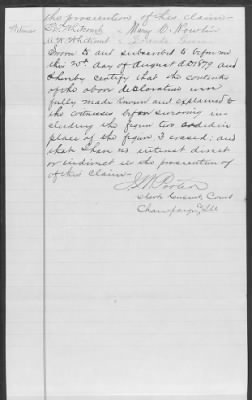 the prosecution of this claim -
Witness Whitcomb Mary O.
Whitcomb
Sworn to and subscribed before me
this 25th day of August A.D. 1879 and
I hereby certify that the contents
of the above declaration were
fully made known and explained to
the witnesses before swearing in-
cluding the figure two added in
place of the figure 1 erased; and
that I have no interest direct
or indirect in the prosecution
of this claim -
Clerk Circuit Court
Champaign, Ill